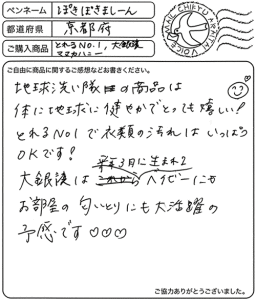 ペンネーム ぽきぽきましーん
都道府県 京都府
ご購入商品 とれるNO.1、大銀醸 マヌカハニー
ご自由に商品に関するご感想などお書きください。
地球洗い隊の商品は
体に地球に健やかでとっても嬉しい!
とれるNO1で衣類の汚れは いっぱつ
OKです!
来年3月に生まれる
大銀醸は ベイビーにか
お部屋の匂いとりにも大活躍の
予感です♡♡♡
ご協力ありがとうございました。
MAIL CHIKYU ARAITAI VOICE